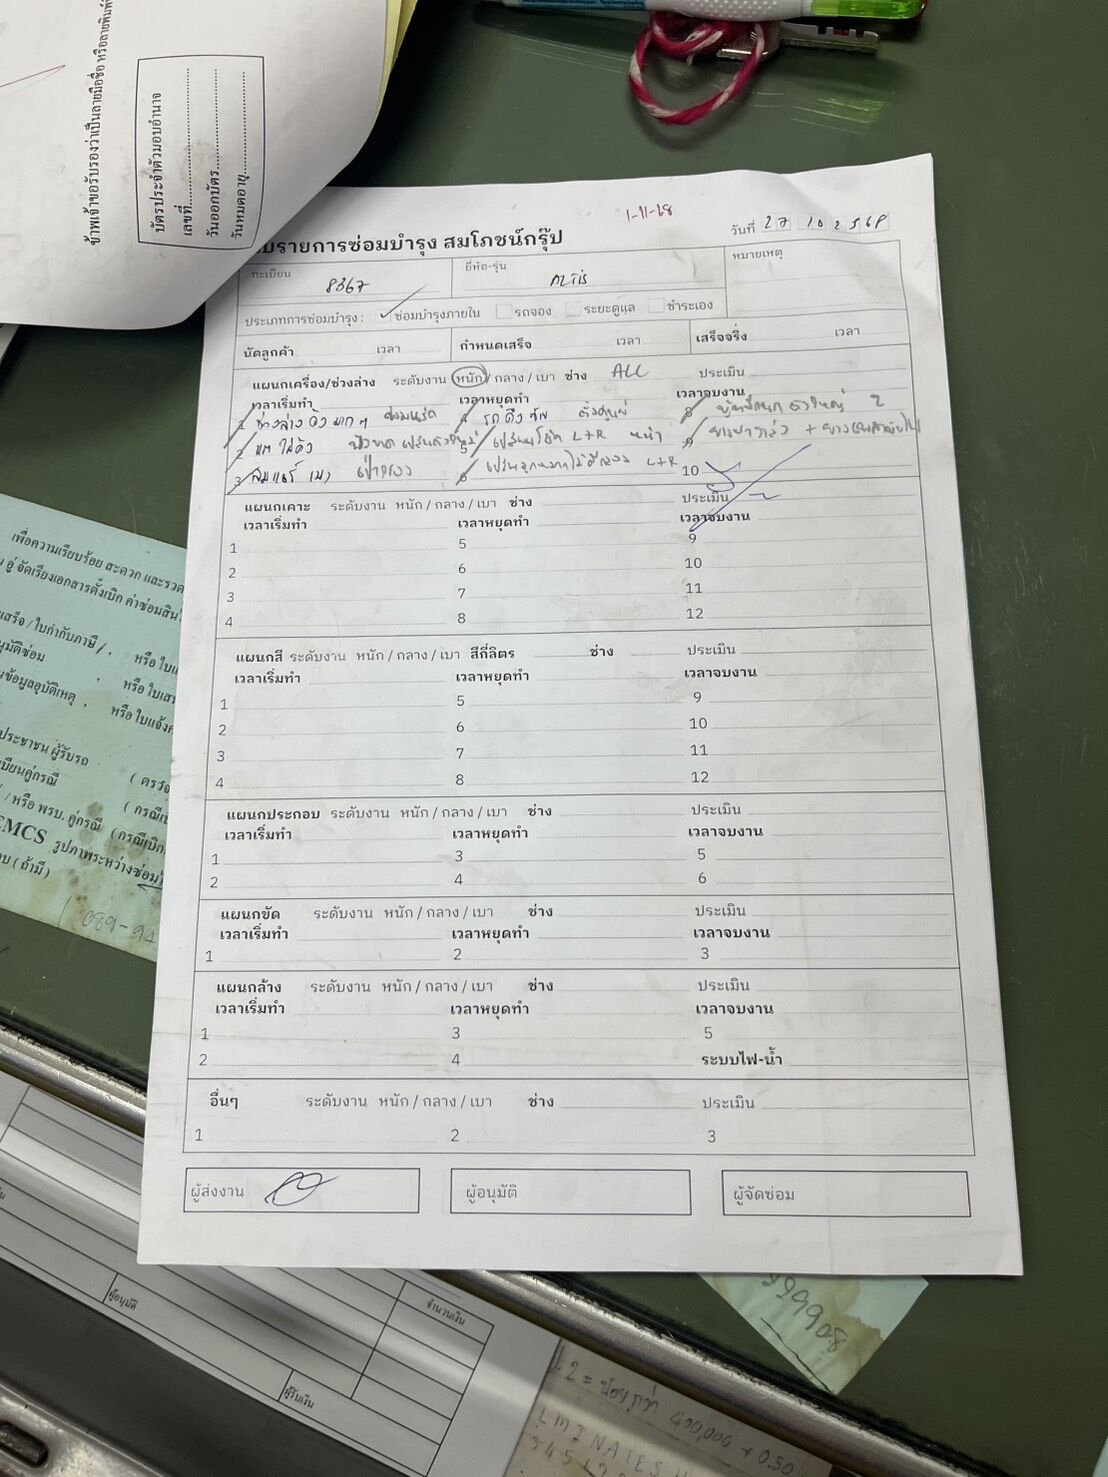 ข้าพเจ้าขอรับรองว่าเป็นลายมือชื่อ หรือลายพิมพ์
บัตรประจำตัวมอบอำนาจ
เลขที่
วันออกบัตร
วันหมดอายุ
1-11-68
วันที่ 27 10 2568
บรายการซ่อมบำรุง สมโภชน์กรุ๊ป
ทะเบียน 8367 ยี่ห้อ-รุ่น ALTIS หมายเหตุ
ประเภทการซ่อมบำรุง : ซ่อมบำรุงภายใน รถจอง ระยะดูแล ชำระเอง
นัดลูกค้า เวลา กำหนดเสร็จ เวลา เสร็จจริง เวลา
แผนกเครื่อง/ช่วงล่าง ระดับงาน หนัก / กลาง / เบา ช่าง ALL ประเมิน
เวลาเริ่มทำ เวลาหยุดทำ เวลาจบงาน
1 ช่วงล่าง ดัง มาก ๆ 4 รถ ดึง ซ้าย ตั้งศูนย์ 8 2
2 แตร ไม่ดัง 5 เปลี่ยนโช๊ค L+R หน้า 9
3 6 L+R 10
แผนกเคาะ ระดับงาน หนัก / กลาง / เบา ช่าง ประเมิน
เวลาเริ่มทำ เวลาหยุดทำ เวลาจบงาน
1 5 9
2 6 10
3 7 11
4 8 12
แผนกสี ระดับงาน หนัก / กลาง / เบา สีกี่ลิตร ช่าง ประเมิน
เวลาเริ่มทำ เวลาหยุดทำ เวลาจบงาน
1 5 9
2 6 10
3 7 11
4 8 12
แผนกประกอบ ระดับงาน หนัก / กลาง / เบา ช่าง ประเมิน
เวลาเริ่มทำ เวลาหยุดทำ เวลาจบงาน
1 3 5
2 4 6
แผนกขัด ระดับงาน หนัก / กลาง / เบา ช่าง ประเมิน
เวลาเริ่มทำ เวลาหยุดทำ เวลาจบงาน
1 2 3
แผนกล้าง ระดับงาน หนัก / กลาง / เบา ช่าง ประเมิน
เวลาเริ่มทำ เวลาหยุดทำ เวลาจบงาน
1 3 5
2 4 ระบบไฟ-น้ำ
อื่นๆ ระดับงาน หนัก / กลาง / เบา ช่าง ประเมิน
1 2 3
ผู้ส่งงาน ผู้อนุมัติ ผู้จัดซ่อม
เพื่อความเรียบร้อย สะดวก และรวด
อู่ จัดเรียงเอกสารตั้งเบิก ค่าซ่อมสิน
เสร็จ / ใบกำกับภาษี / , หรือ ใบ
นุมัติซ่อม , หรือ ใบเส
ข้อมูลอุบัติเหตุ , หรือ ใบแจ้ง
ประชาชน ผู้รับรถ ( ตรว
เบียนคู่กรณี ( กรณี
/ หรือ พรบ. คู่กรณี (กรณีเบิก
EMCS รูปภาพระหว่างซ่อม
บ ( ถ้ามี )
089-94
จำนวนเงิน
ผู้อนุมัติ
ผู้รับเงิน
99908
2 = น้อยกว่า 400,000 + 0.50
LMINATES